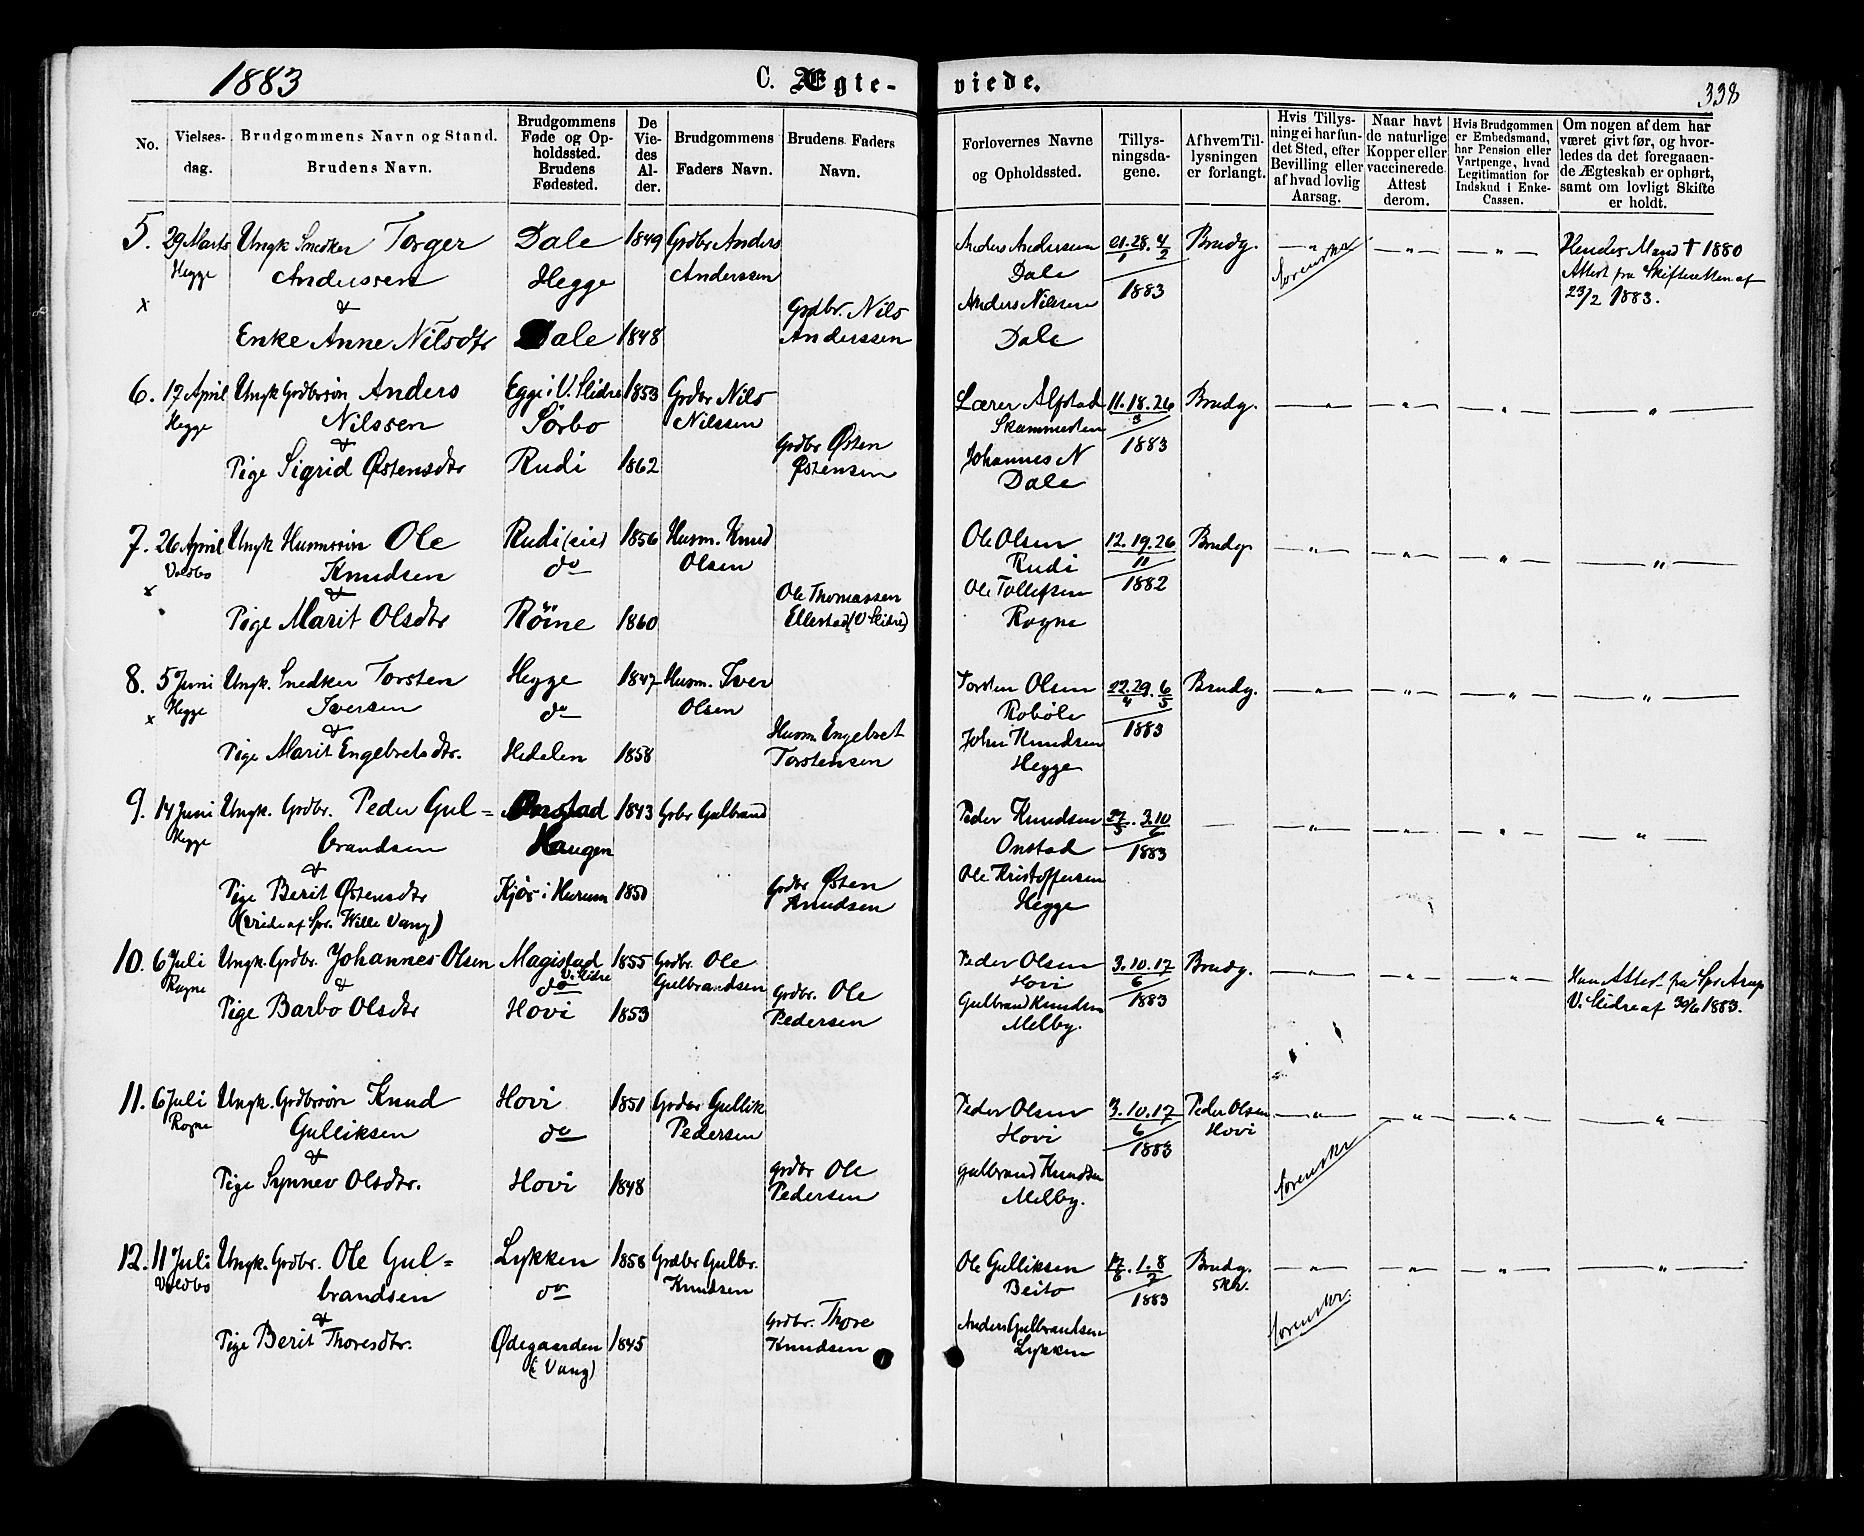 1883
C. Ægte-
viede.
338
No.
Vielses-
dag.
Brudgommens Navn og Stand.
Brudens Navn.
Brudgommens
Føde og Op-
holdssted.
Brudens
Fødested.
De
Vie-
des
Al-
der.
Brudgommens
Faders Navn.
Brudens Faders
Navn.
Forlovernes Navne
og Opholdssted.
Tillys-
ningsda-
gene.
Af hvem Til-
lysningen
er forlangt.
Hvis Tillys-
ning ei har fun-
det Sted, efter
Bevilling eller
af hvad lovlig
Aarsag.
Naar havt
de naturlige
Kopper eller
vaccinerede.
Attest
derom.
Hvis Brudgommen
er Embedsmand,
har Pension eller
Vartpenge, hvad
Legitimation for
Indskud i Enke-
Cassen.
Om nogen af dem har
været givt før, og hvor-
ledes da det foregaaen-
de Ægteskab er ophørt,
samt om lovligt Skifte
er holdt.
5. 29 Marts Ungk Snedker Torger Dale 1849 Grdbr Anders
Hegge Anderssen Hegge Anderssen
x & Grdbr. Nils
Enke Anne Nilsdtr Dale 1848 Anderssen
Anders Anderssen 21.28.4 Brudg. — " — — " — — " — Hendes Mand † 1880
1 2
Dale 1883 Attest fra Skifteretten af
Anders Nilssen 23/2 1883.
Dale
6. 17 April Ungk Grdbrsøn Anders Egge i V. Slidre 1853 Grdbr Nils
Hegge Nilssen Sørbo Nilssen
& Grdbr Østen
Pige Sigrid Østensdtr Rudi 1862 Østensen
Lærer Alfstad 11.18.26 Brudg. — " — — " — — " — — " —
Skammesten 3
Johannes N 1883
Dale
7. 26 April Ungk Husmssøn Ole Rudi (eie) 1856 Husm. Knud
Voldbo Knudsen do Olsen
x & Ole Thomassen
Pige Marit Olsdtr Røine 1860 Ellestad (V Slidre)
Ole Olsen 12.19.26 Brudg. — " — — " — — " — — " —
Rudi 11
Ole Tollefsen 1882
Rogne
8. 5 Juni Ungk. Snedker Torsten Hegge 1847 Husm. Iver
Hegge Iversen do Olsen
x & Husm Engebret
Pige Marit Engebretsdtr. Hedalen 1858 Torstensen
Torsten Olsen 22.29.6 Brudg. — " — — " — — " — — " —
4 5
Robøle 1883
John Knudsen
Hegge
9. 14 Juni Ungk. Grdbr. Peder Gul= Onstad 1843 Grbr Gulbrand
Hegge brandsen Haugen
& Grdbr Østen
Pige Berit Østensdtr Kjøs i Hurum 1850 Knudsen
(viede af Spr. Wille Vang)
Peder Knudsen 27.3.10 — — " — — " — — " — — " —
5 6
Onstad 1883
Ole Kristoffersen
Hegge
10. 6 Juli Ungk. Grdbr. Johannes Olsen Magistad 1855 Grdbr. Ole
Rogne & V. Slidre Gulbrandsen
do Grdbr. Ole
Pige Barbo Olsdtr Hovi 1853 Pedersen
Peder Olsen 3.10.17 Brudg. — " — — " — — " — Han Attest fra Spr Arup
Hovi 6 V. Slidre af 30/6 1883.
Gulbrand Knudsen 1883
Melby.
11. 6 Juli Ungk. Grdbrsøn Knud Hovi 1851 Grdbr Gullik
Rogne Gulliksen do Pedersen
& Grdbr Ole
Pige Synnev Olsdtr. Hovi 1848 Pedersen
Peder Olsen 3.10.17 Peder Olsen — " — — " — — " — — " —
Hovi 6 Hovi
1883
Gulbrand Knudsen
Melby.
12. 11 Juli Ungk. Grdbr. Ole Gul= Lykken 1858 Grdbr Gulbr.
Voldbo brandsen do Knudsen
& Grdbr. Thore
Pige Berit Thoresdtr. Ødegaarden 1845 Knudsen
(i Vang)
Ole Gulliksen 17.1.8 Brudg. — " — — " — — " — — " —
6 7
Beito 1883 skr.
Anders Gulbrandsen
Lykken